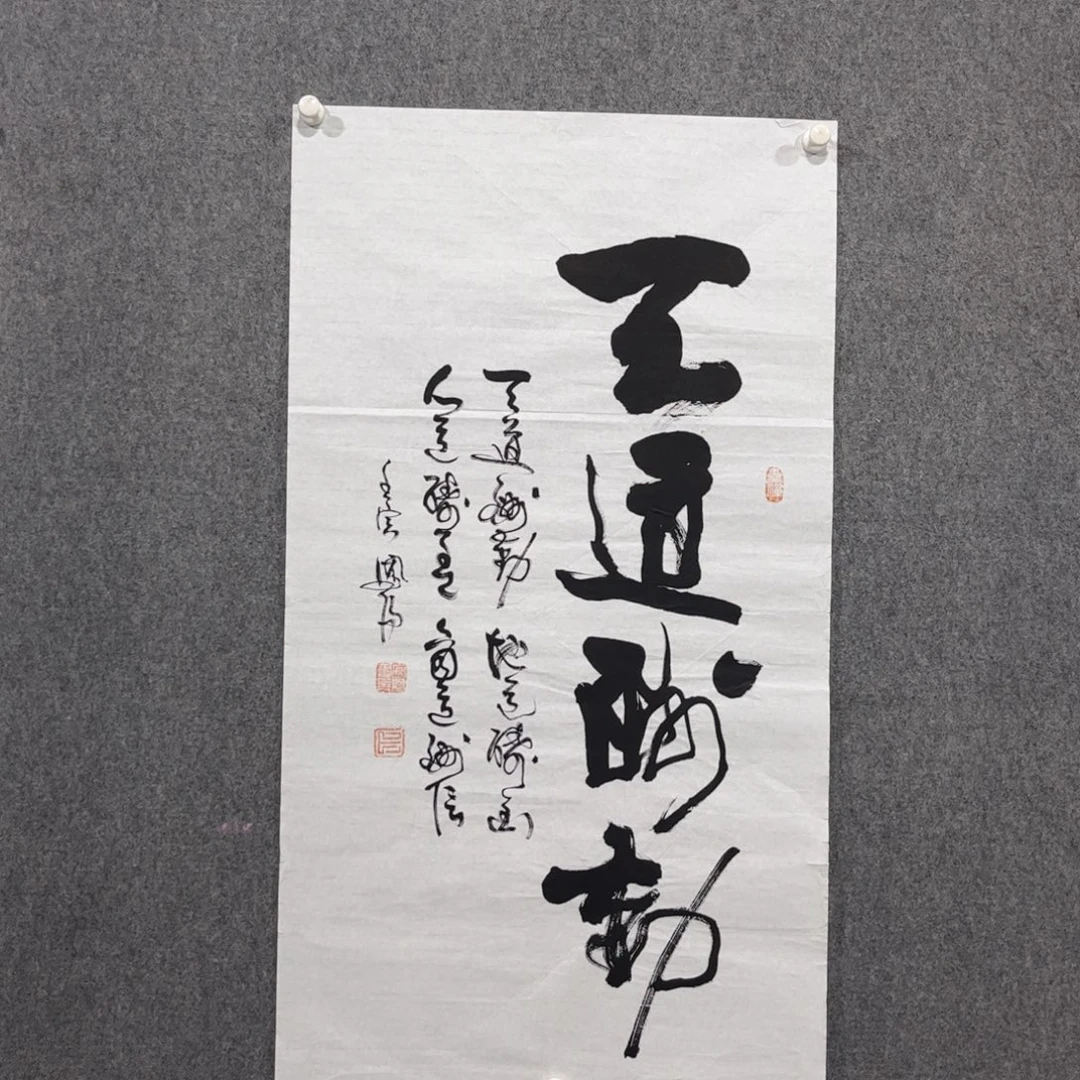 天道酬勤
天道酬勤 地道酬
人道酬 商道酬信
壬寅